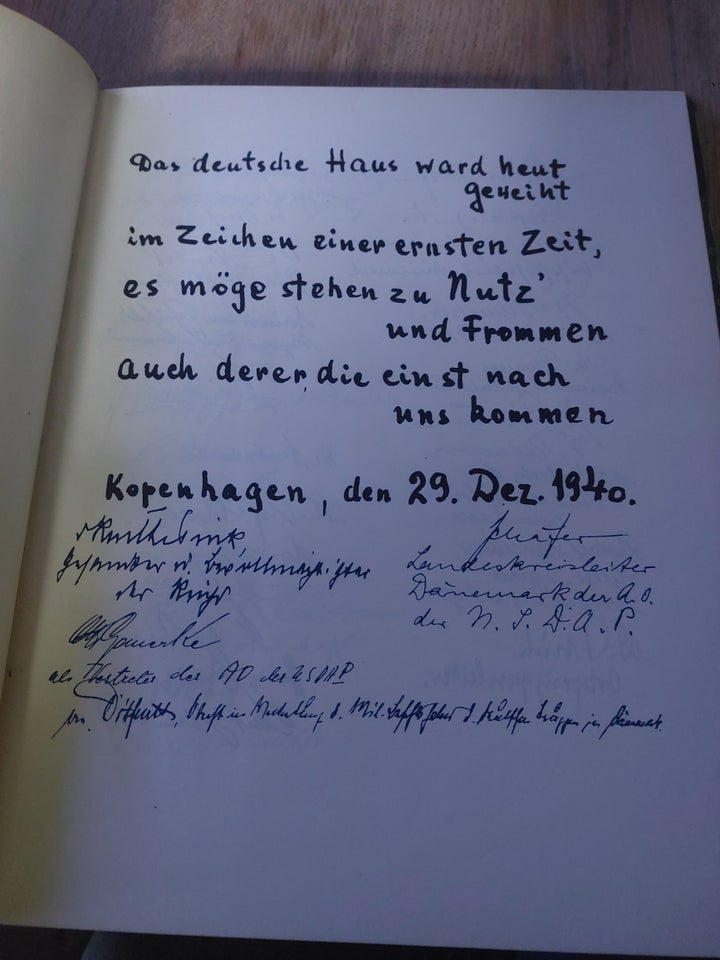 Das deutsche Haus ward heut
geweiht
im Zeichen einer ernsten Zeit,
es möge stehen zu Nutz'
und Frommen
auch derer, die einst nach
uns kommen
Kopenhagen, den 29. Dez. 1940.
Gesandter u. Bevollmächtigter
des Reichs
Schäfer
Landeskreisleiter
Dänemark der A.O.
der N.S.D.A.P.
als Vertreter der AO der NSDAP
in Dänemark.